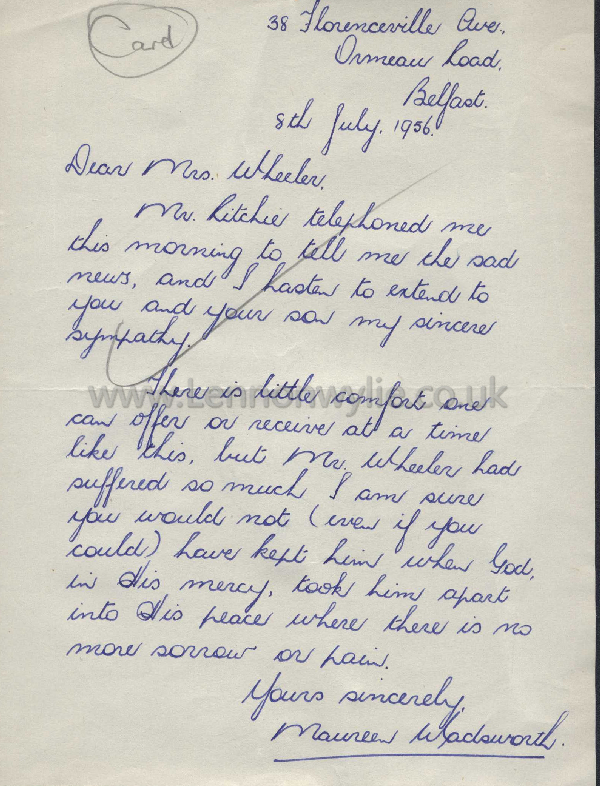 Card
38 Florenceville Ave.,
Ormeau Road,
Belfast.
8th July, 1956.
Dear Mrs. Wheeler,
Mr. Ritchie telephoned me
this morning to tell me the sad
news, and I hasten to extend to
you and your son my sincere
sympathy.
www.Lennonwylie.co.uk
There is little comfort one
can offer or receive at a time
like this, but Mr. Wheeler had
suffered so much I am sure
you would not (even if you
could) have kept him when God,
in His mercy, took him apart
into His peace where there is no
more sorrow or pain.
Yours sincerely,
Maureen Wadsworth.